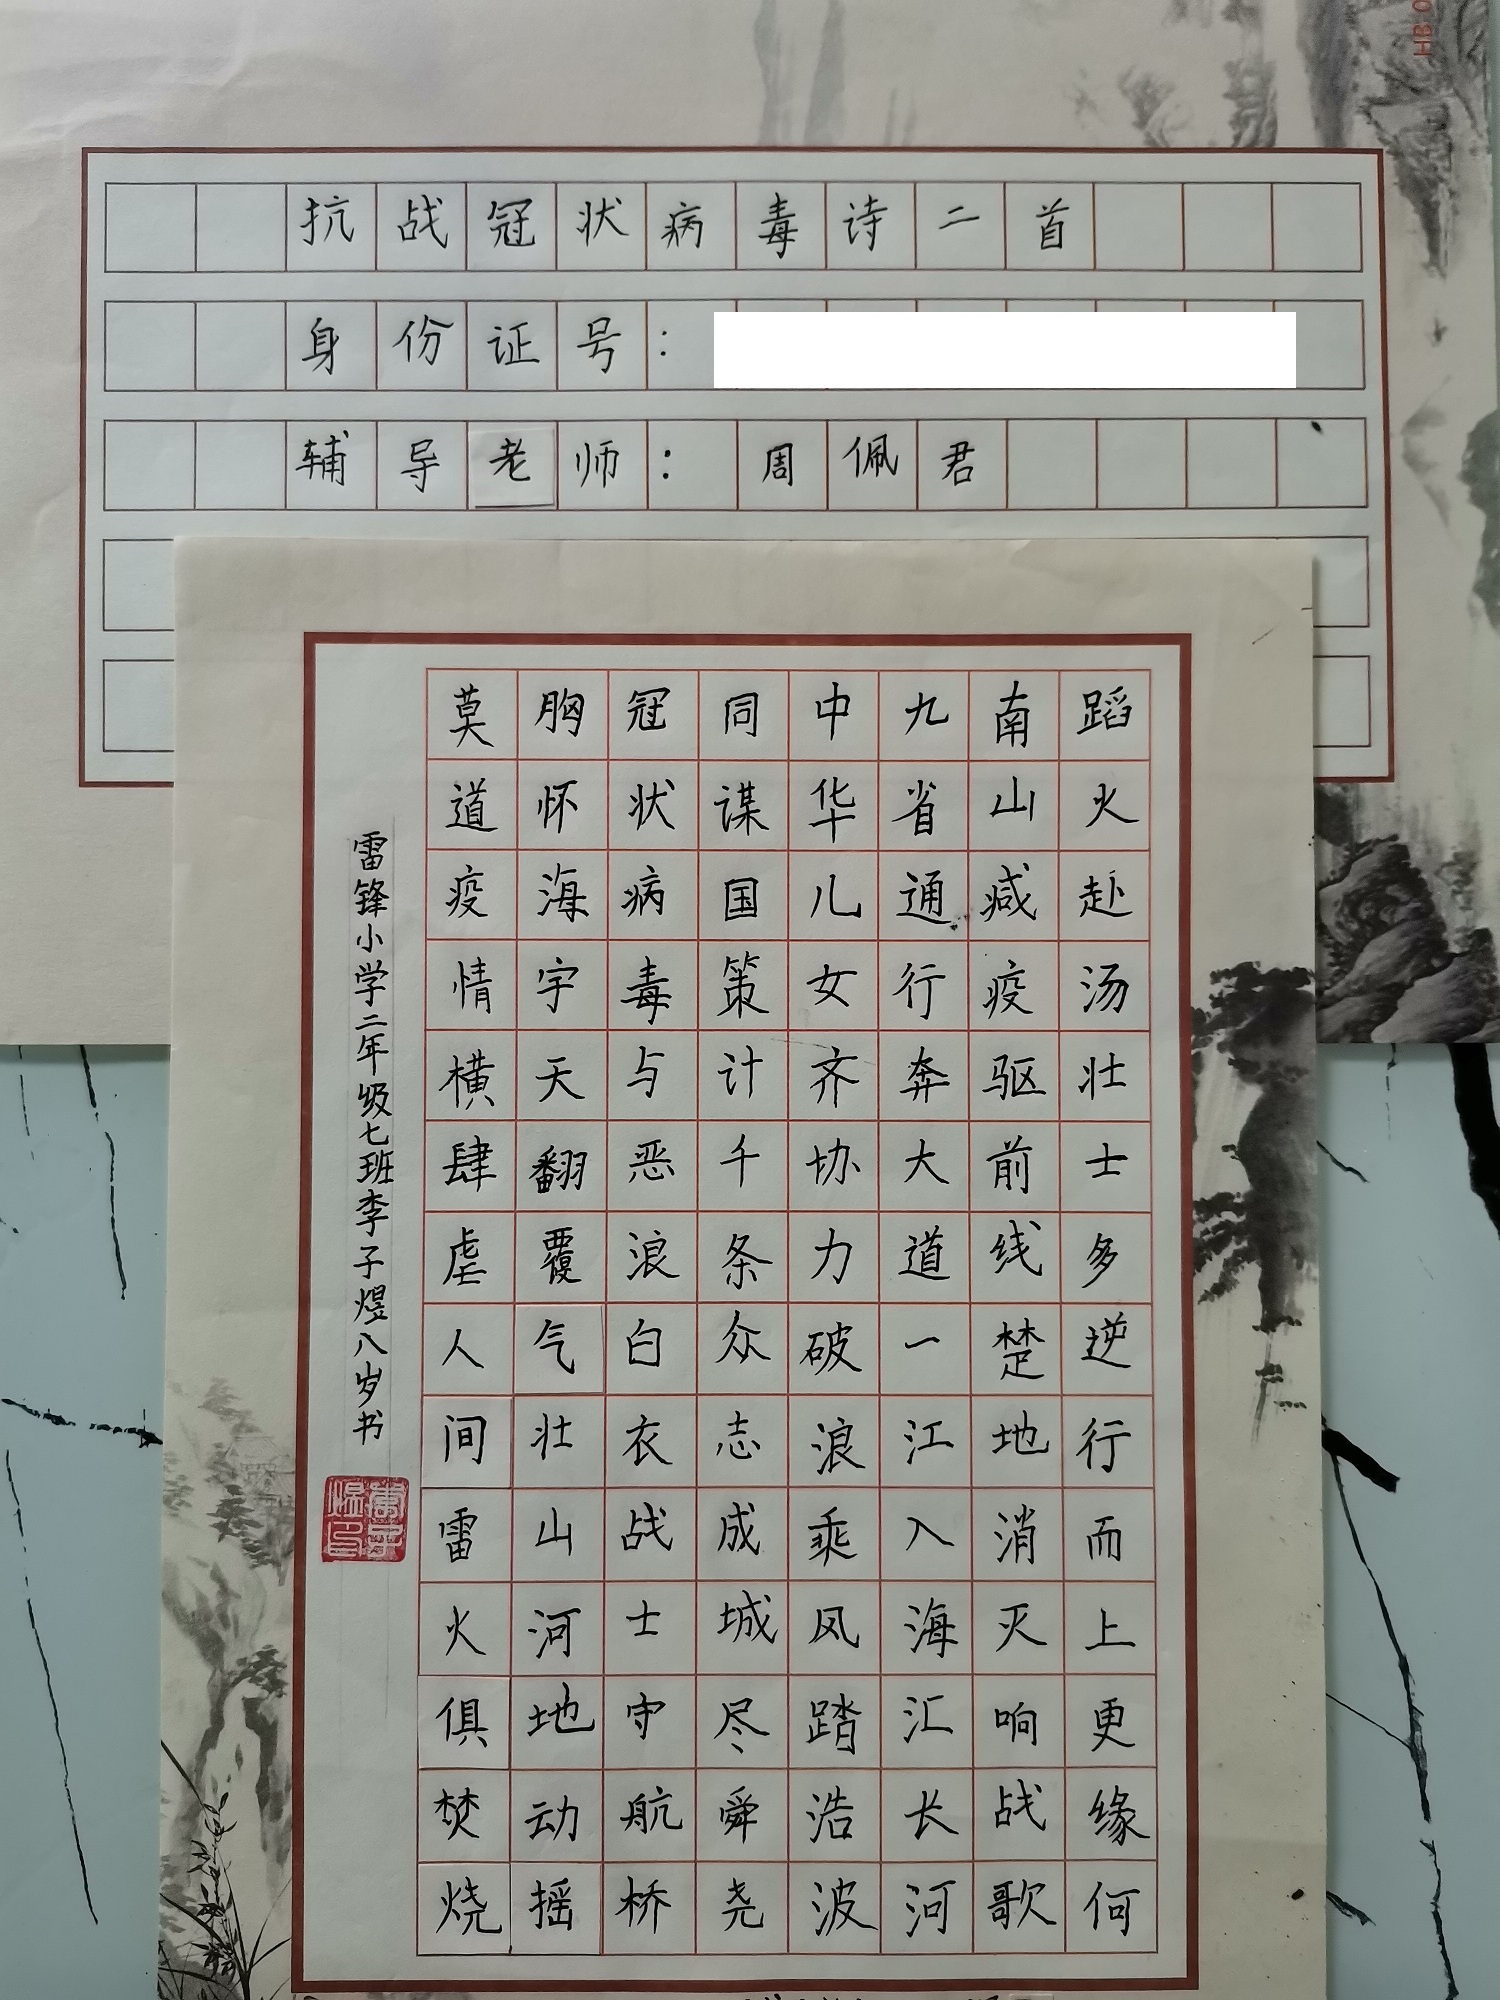 抗战冠状病毒诗二首
身份证号：
辅导老师：周佩君
蹈火赴汤壮士多逆行而上更缘何
南山减疫驱前线楚地消灭响战歌
九省通行奔大道一江入海汇长河
中华儿女齐协力破浪乘风踏浩波
同谋国策计千条众志成城尽舜尧
冠状病毒与恶浪白衣战士守航桥
胸怀海宇天翻覆气壮山河地动摇
莫道疫情横肆虐人间雷火俱焚烧
雷锋小学二年级七班李子煜八岁书